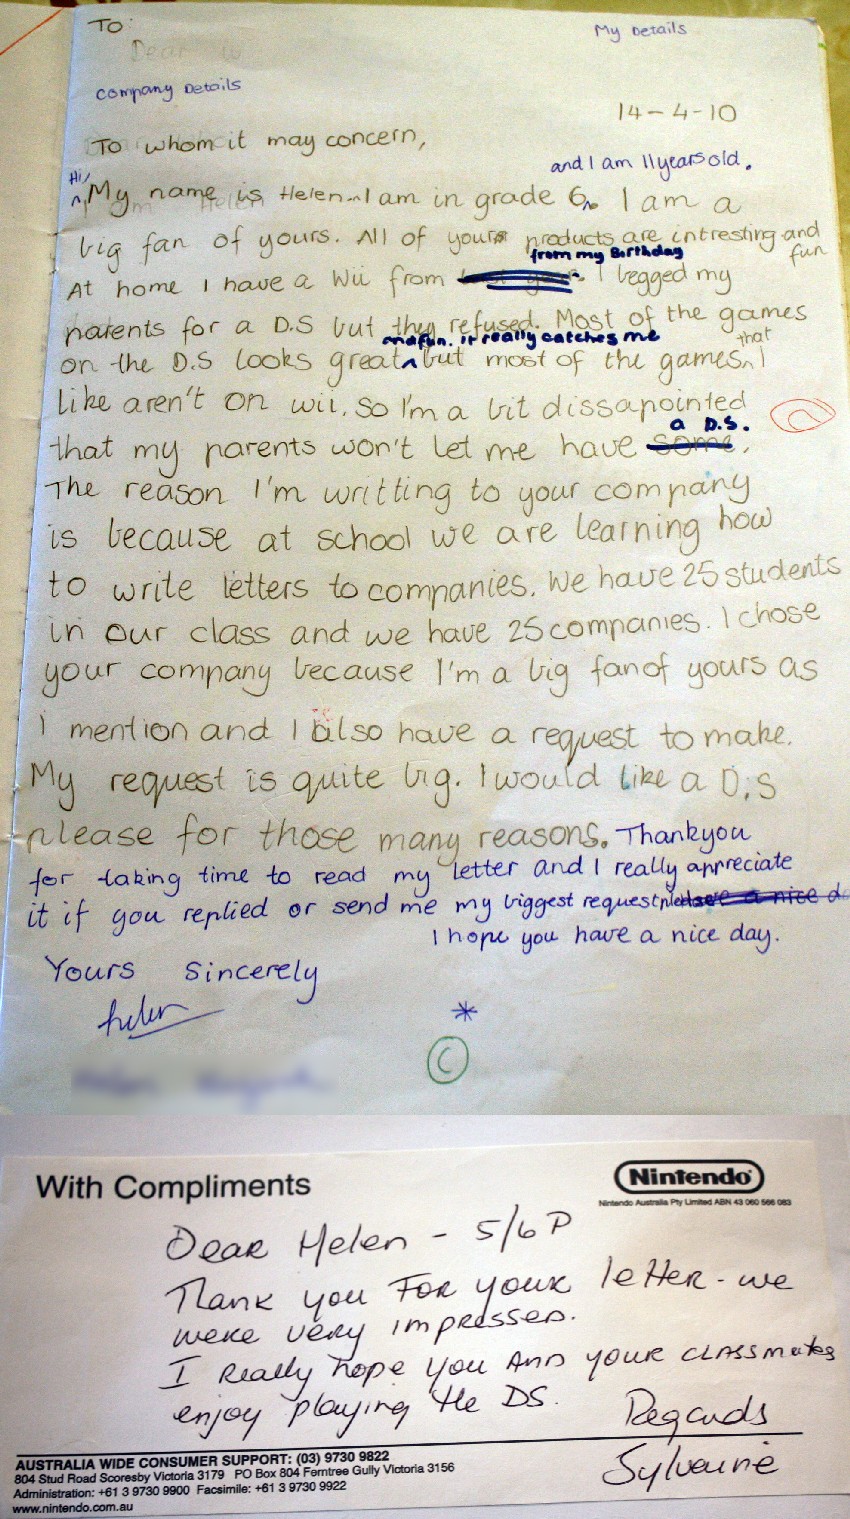 To:
My Details
Dear
Company Details
14-4-10
To whom it may concern,
and I am 11 years old.
Hi,
My name is Helen. I am in grade 6. I am a
big fan of yours. All of yours products are intresting and
fun
from my Birthday
At home I have a Wii from I begged my
parents for a D.S but they refused. Most of the games
and fun. it really catches me
that
on the D.S looks great but most of the games I
like aren't on wii. So I'm a bit dissapointed
a D.S.
that my parents won't let me have some.
The reason I'm writting to your company
is because at school we are learning how
to write letters to companies. We have 25 students
in our class and we have 25 companies. I chose
your company because I'm a big fan of yours as
I mention and I also have a request to make.
My request is quite big. I would like a D.S
please for those many reasons. Thankyou
for taking time to read my letter and I really appreciate
it if you replied or send me my biggest request please Have a nice d
I hope you have a nice day.
Yours Sincerely
helen
*
C
With Compliments
Nintendo
Nintendo Australia Pty Limited ABN 43 060 566 083
Dear Helen - 5/6 P
Thank you for your letter - we
were very impressed.
I really hope you and your classmates
enjoy playing the DS.
Regards
Sylvaine
AUSTRALIA WIDE CONSUMER SUPPORT: (03) 9730 9822
804 Stud Road Scoresby Victoria 3179 PO Box 804 Ferntree Gully Victoria 3156
Administration: +61 3 9730 9900 Facsimile: +61 3 9730 9922
www.nintendo.com.au